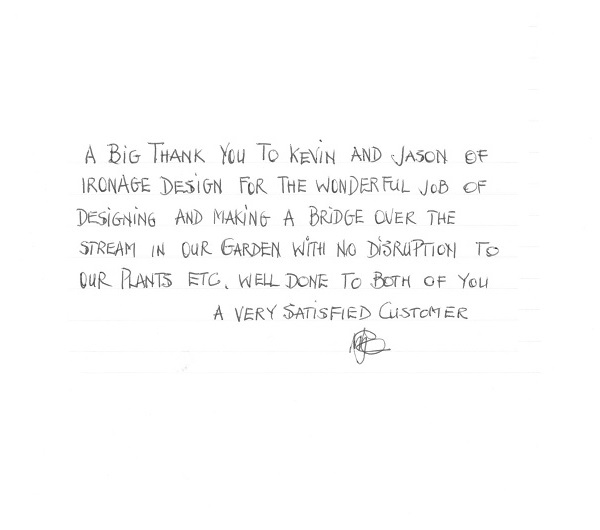 A BIG THANK YOU TO KEVIN AND JASON OF
IRONAGE DESIGN FOR THE WONDERFUL JOB OF
DESIGNING AND MAKING A BRIDGE OVER THE
STREAM IN OUR GARDEN WITH NO DISRUPTION TO
OUR PLANTS ETC. WELL DONE TO BOTH OF YOU
A VERY SATISFIED CUSTOMER